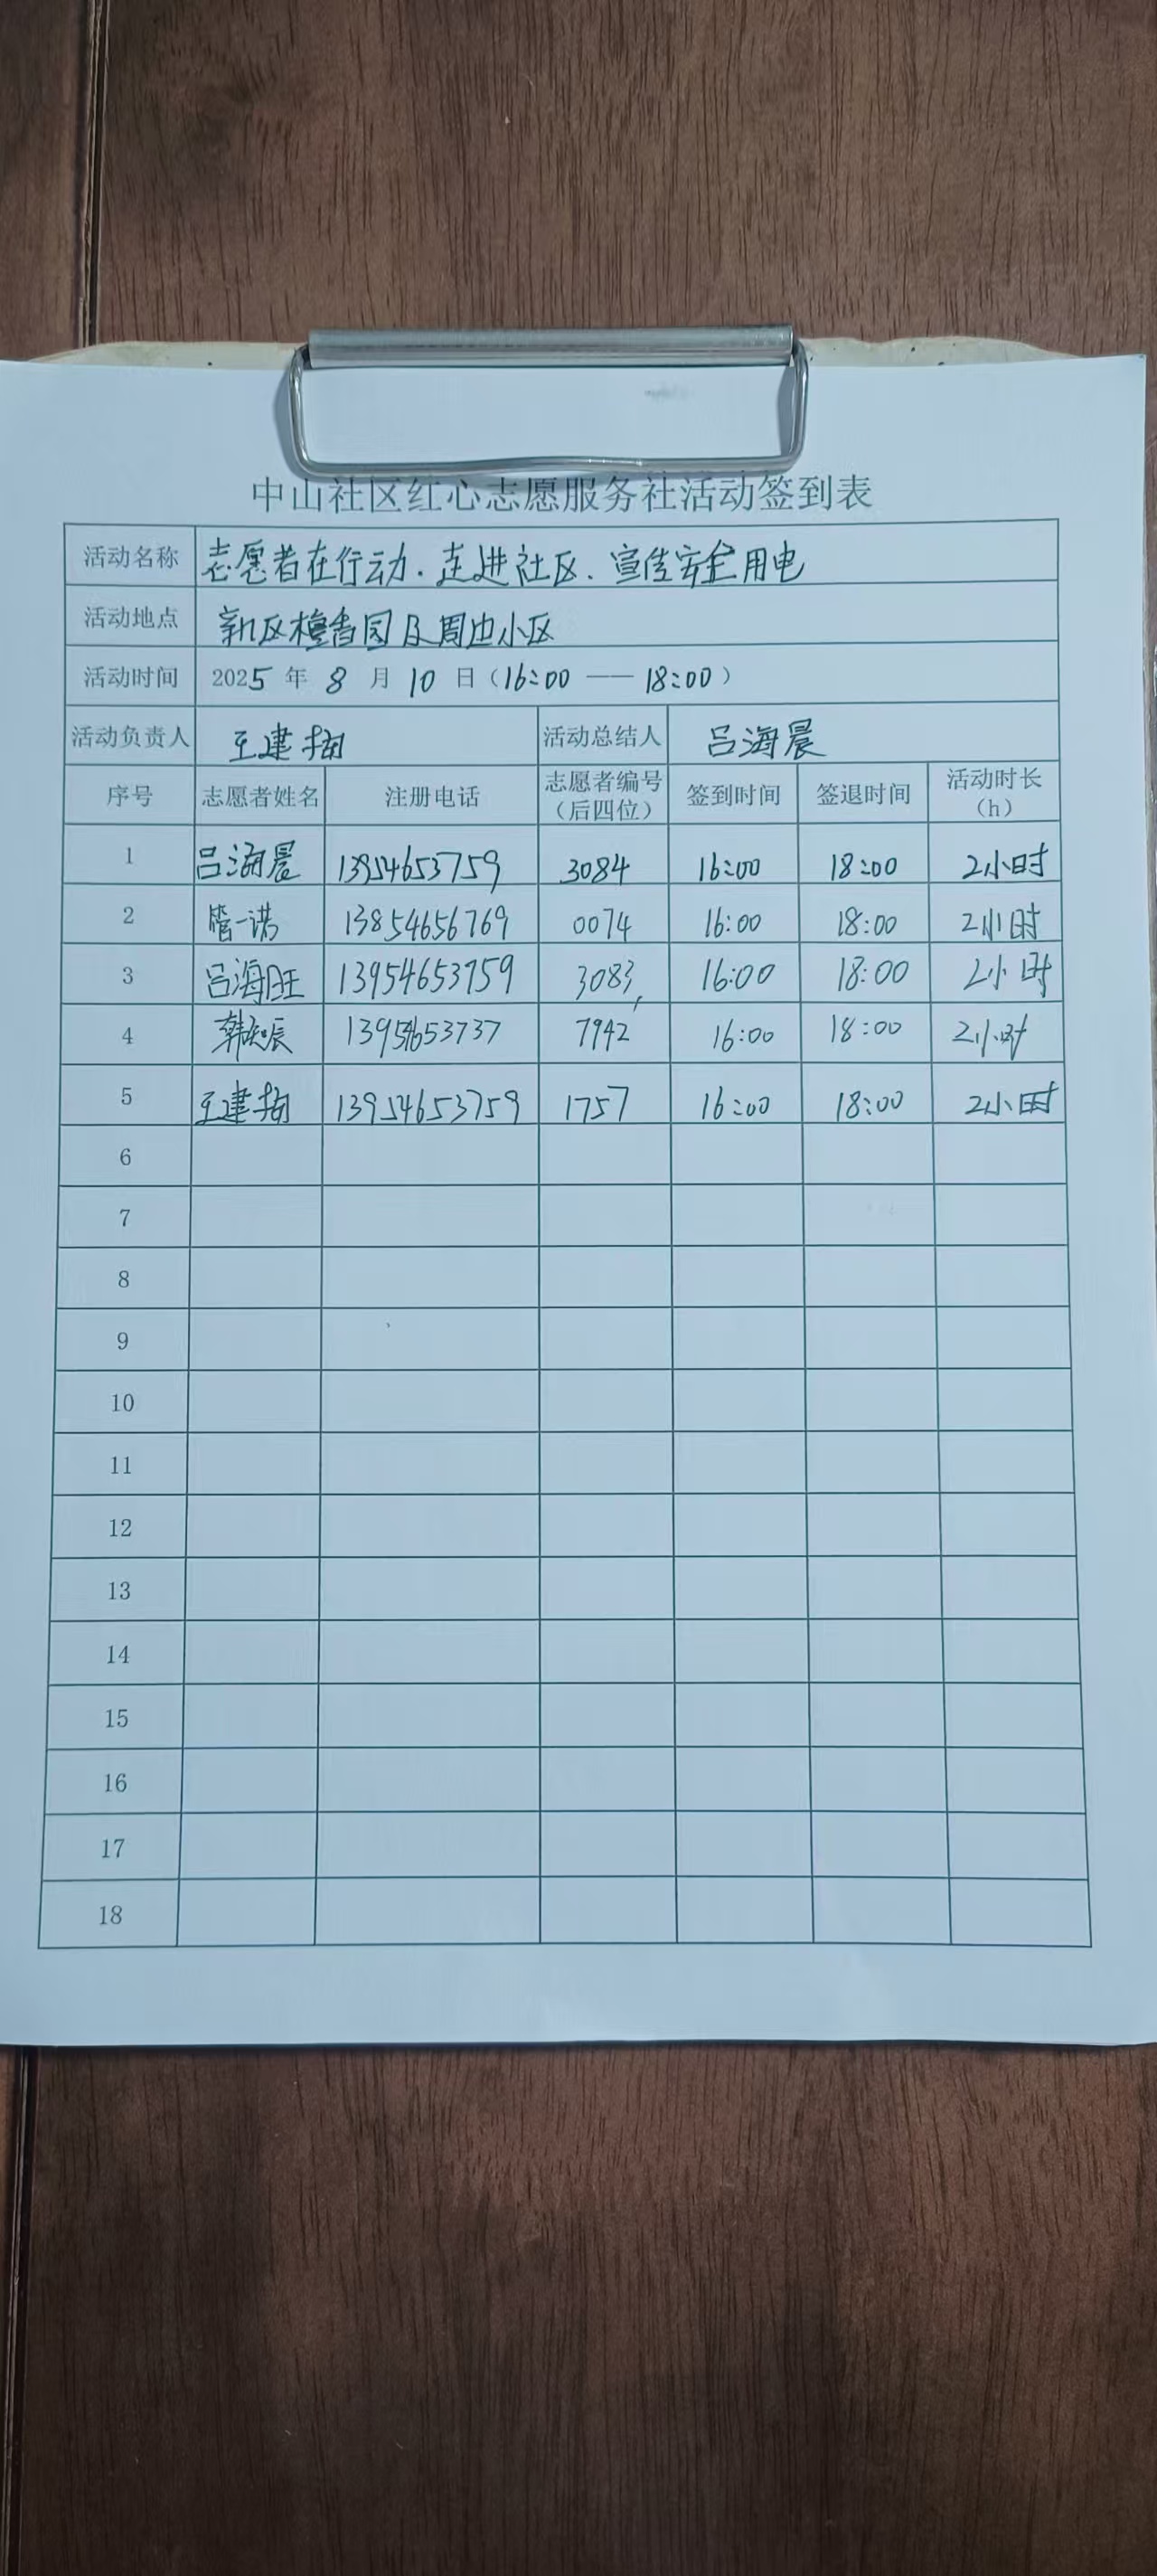 中山社区红心志愿服务社活动签到表
活动名称 志愿者在行动.走进社区、宣传安全用电
活动地点 新区檀香园及周边小区
活动时间 2025 年 8 月 10 日（16:00 —— 18:00）
活动负责人 王建 活动总结人 吕海晨
序号 志愿者姓名 注册电话 志愿者编号（后四位） 签到时间 签退时间 活动时长（h）
1 吕海晨 13954653759 3084 16:00 18:00 2小时
2 管一诺 13854656769 0074 16:00 18:00 2小时
3 吕海旺 13954653759 3083 16:00 18:00 2小时
4 韩辰 13954653737 7942 16:00 18:00 2小时
5 王建 13954653759 1757 16:00 18:00 2小时
6
7
8
9
10
11
12
13
14
15
16
17
18